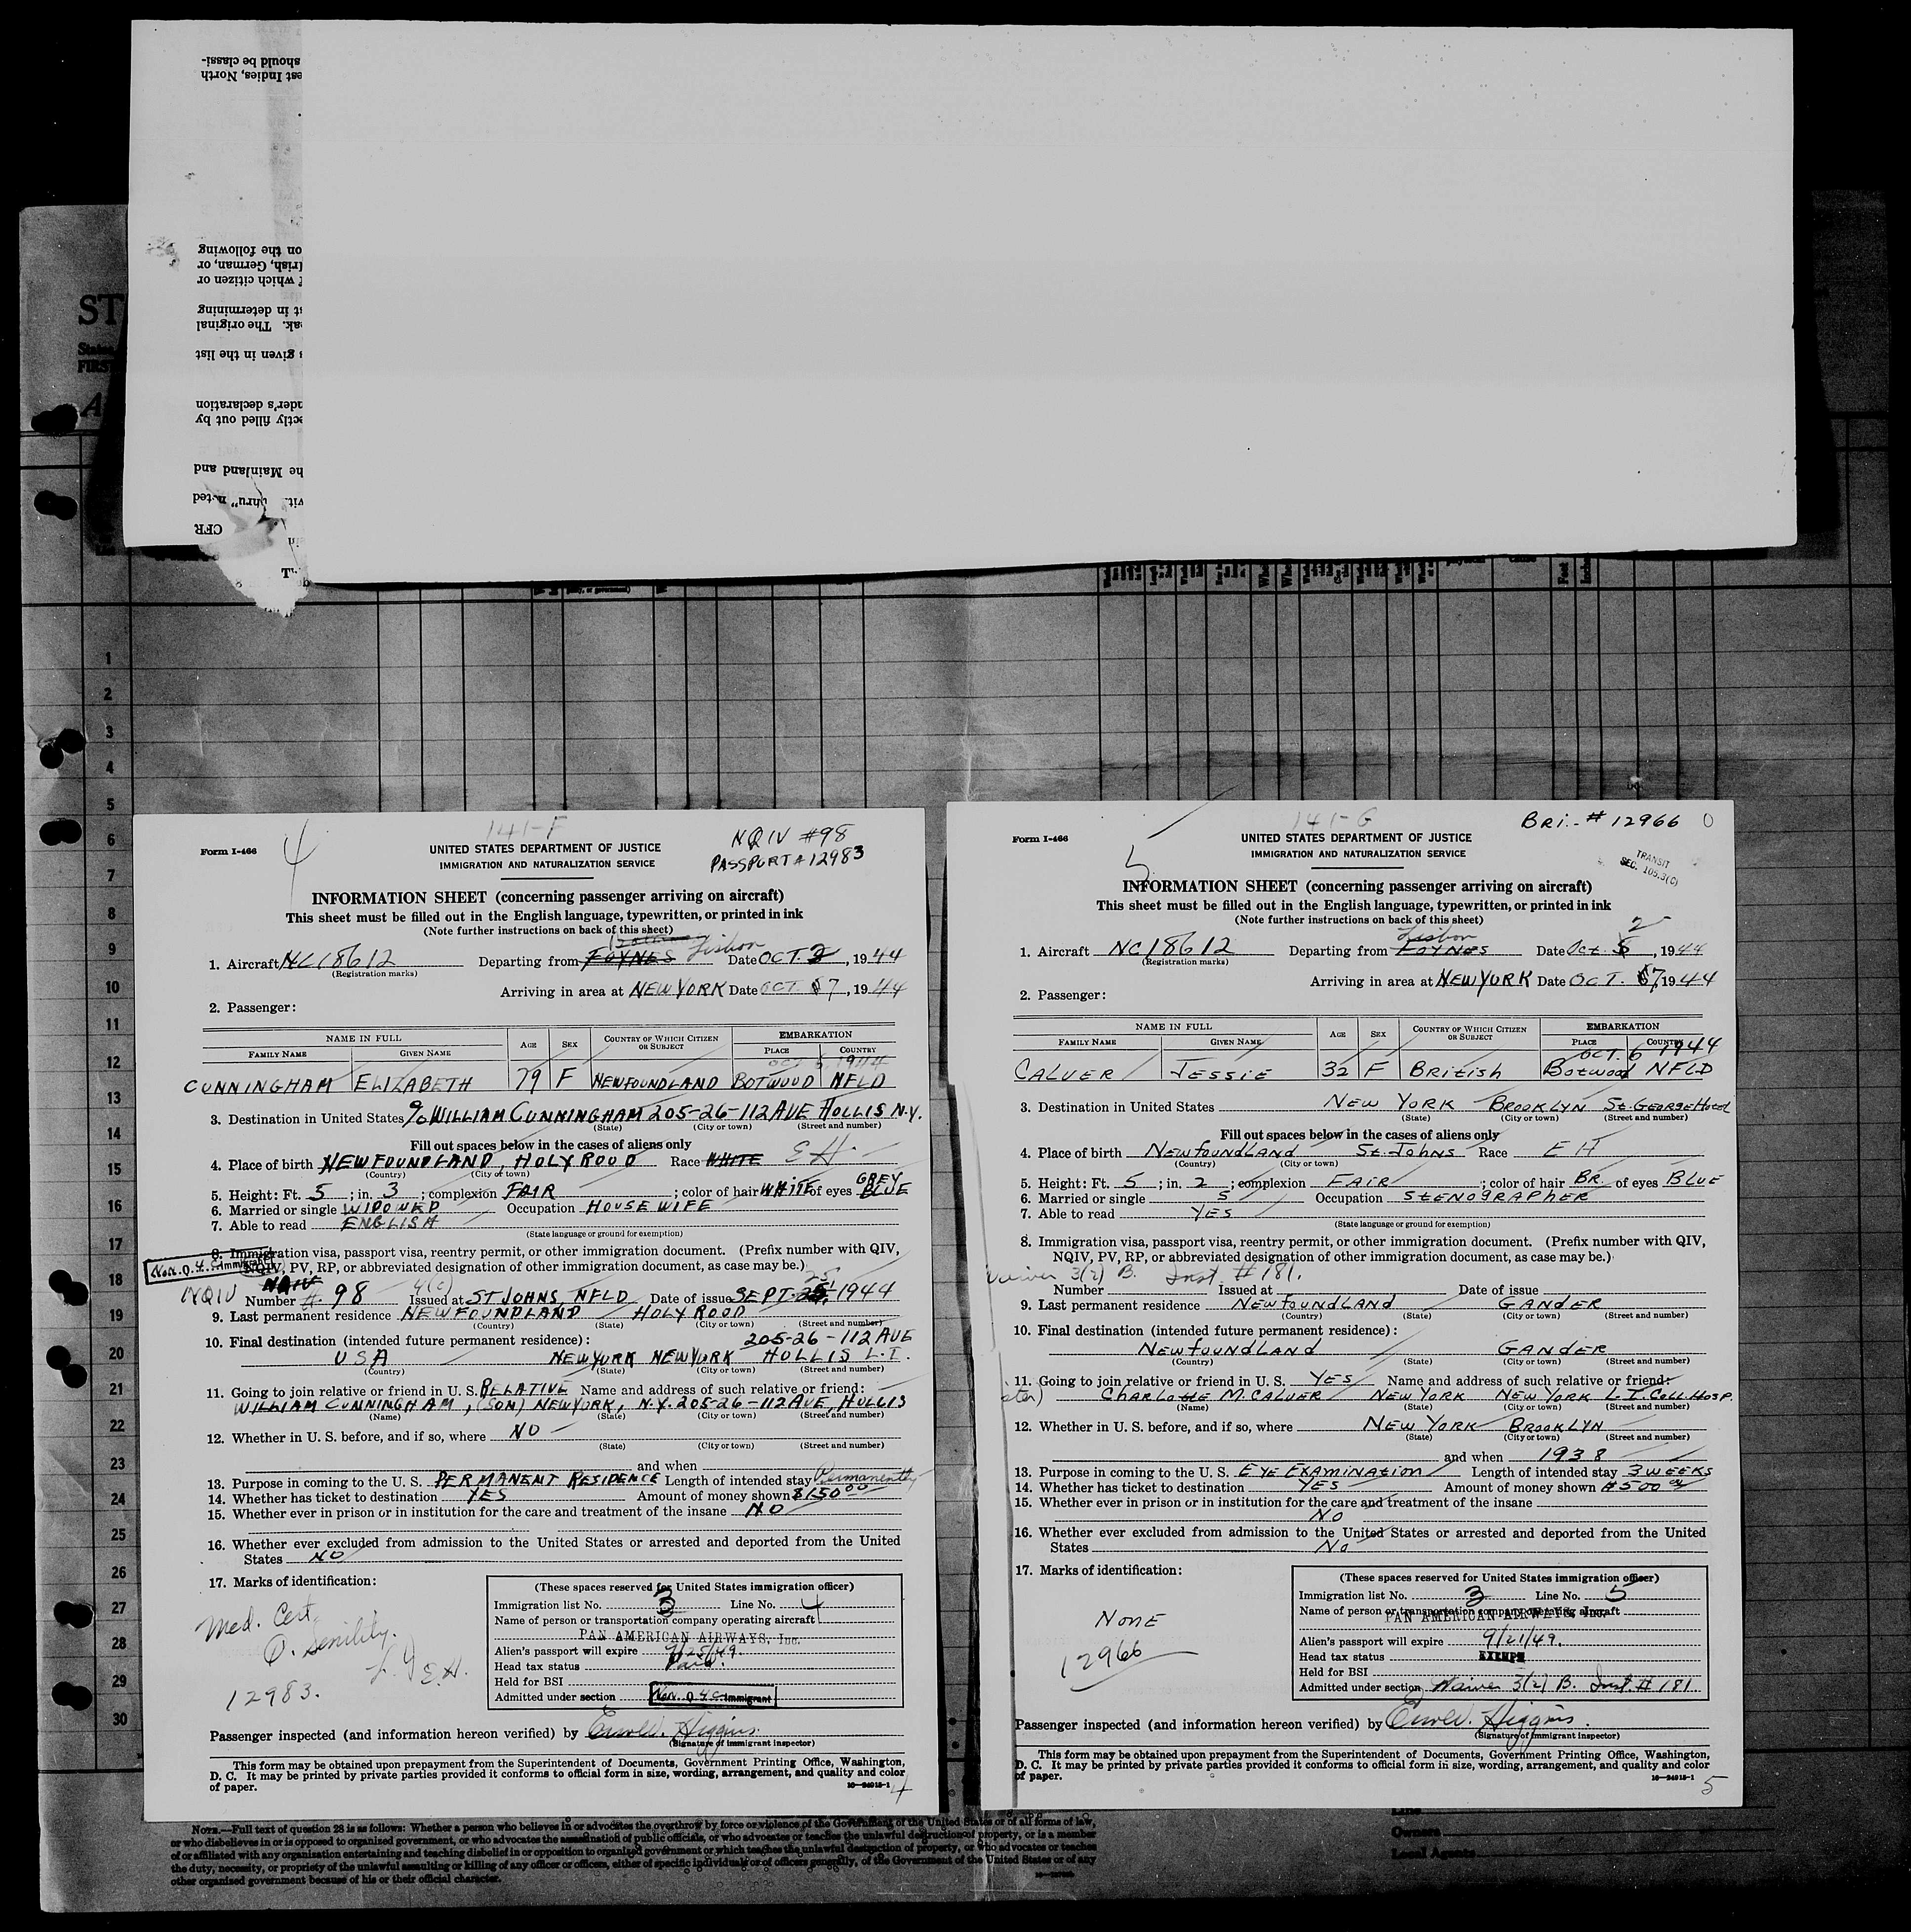 should be classi-
est Indies, North
on the following
Irish, German, or
f which citizen or
st in determining
eak. The original
s given in the list
nder's declaration
ectly filled out by
he Mainland and
CFR
ST
FIRST
A
1
2
3
4
5
6
7
8
9
10
11
12
13
14
15
16
17
18
19
20
21
22
23
24
25
26
27
28
29
30
4
141-F
NQIV #98
PASSPORT # 12983
Form I-466
UNITED STATES DEPARTMENT OF JUSTICE
IMMIGRATION AND NATURALIZATION SERVICE
INFORMATION SHEET (concerning passenger arriving on aircraft)
This sheet must be filled out in the English language, typewritten, or printed in ink
(Note further instructions on back of this sheet)
1. Aircraft NC18612 Departing from FOYNES Lisbon Date OCT. 2, 1944
(Registration marks)
Arriving in area at NEW YORK Date OCT. 7, 1944
2. Passenger:
NAME IN FULL AGE SEX COUNTRY OF WHICH CITIZEN OR SUBJECT EMBARKATION
FAMILY NAME GIVEN NAME PLACE COUNTRY
OCT 6 1944
CUNNINGHAM ELIZABETH 79 F NEWFOUNDLAND BOTWOOD NFLD
3. Destination in United States % WILLIAM CUNNINGHAM 205-26-112 AVE HOLLIS N.Y.
(State) (City or town) (Street and number)
Fill out spaces below in the cases of aliens only
4. Place of birth NEWFOUNDLAND, HOLYROOD Race WHITE EH
(Country) (City or town)
5. Height: Ft. 5; in. 3; complexion FAIR; color of hair WHITE of eyes BLUE GREY
6. Married or single WIDOWED Occupation HOUSEWIFE
7. Able to read ENGLISH
(State language or ground for exemption)
8. Immigration visa, passport visa, reentry permit, or other immigration document. (Prefix number with QIV,
NQIV, PV, RP, or abbreviated designation of other immigration document, as case may be.)
Non. Q. 4. C. Immigrant
NQIV NQIV 4(c) 25
Number # 98 Issued at ST JOHNS, NFLD Date of issue SEPT. 25, 1944
9. Last permanent residence NEWFOUNDLAND HOLYROOD
(Country) (State) (City or town) (Street and number)
10. Final destination (intended future permanent residence): 205-26-112 AVE
USA NEW YORK NEW YORK HOLLIS L.I.
(Country) (State) (City or town) (Street and number)
11. Going to join relative or friend in U. S. RELATIVE Name and address of such relative or friend:
WILLIAM CUNNINGHAM, (SON) NEW YORK, N.Y. 205-26-112 AVE, HOLLIS
(Name) (State) (City or town) (Street and number)
12. Whether in U. S. before, and if so, where NO
(State) (City or town) (Street and number)
and when
13. Purpose in coming to the U. S. PERMANENT RESIDENCE Length of intended stay Permanently
14. Whether has ticket to destination YES Amount of money shown $150 00
15. Whether ever in prison or in institution for the care and treatment of the insane NO
16. Whether ever excluded from admission to the United States or arrested and deported from the United
States NO
17. Marks of identification:
Med. Cert.
Senility.
E.H.
12983.
(These spaces reserved for United States immigration officer)
Immigration list No. 3 Line No. 4
Name of person or transportation company operating aircraft
PAN AMERICAN AIRWAYS, Inc.
Alien's passport will expire 9/25/49.
Head tax status Paid.
Held for BSI
Admitted under section Non. Q. 4. C. Immigrant
Passenger inspected (and information hereon verified) by Higgins.
(Signature of immigrant inspector)
This form may be obtained upon prepayment from the Superintendent of Documents, Government Printing Office, Washington,
D. C. It may be printed by private parties provided it conforms to official form in size, wording, arrangement, and quality and color
of paper. 16—24915-1
4
5
141-G
BRI.- # 12966
Form I-466
TRANSIT
SEC. 105.3(C)
UNITED STATES DEPARTMENT OF JUSTICE
IMMIGRATION AND NATURALIZATION SERVICE
INFORMATION SHEET (concerning passenger arriving on aircraft)
This sheet must be filled out in the English language, typewritten, or printed in ink
(Note further instructions on back of this sheet)
1. Aircraft NC18612 Departing from FOYNES Lisbon Date Oct. 5 2, 1944
(Registration marks)
Arriving in area at NEW YORK Date OCT. 7, 1944
2. Passenger:
NAME IN FULL AGE SEX COUNTRY OF WHICH CITIZEN OR SUBJECT EMBARKATION
FAMILY NAME GIVEN NAME PLACE COUNTRY
OCT. 6 1944
CALVER JESSIE 32 F British Botwood NFLD
3. Destination in United States NEW YORK BROOKLYN St. GEORGE Hotel
(State) (City or town) (Street and number)
Fill out spaces below in the cases of aliens only
4. Place of birth Newfoundland St. Johns Race EH
(Country) (City or town)
5. Height: Ft. 5; in. 2; complexion FAIR; color of hair BR. of eyes BLUE
6. Married or single S Occupation StENOGRAPHER
7. Able to read YES
(State language or ground for exemption)
8. Immigration visa, passport visa, reentry permit, or other immigration document. (Prefix number with QIV,
NQIV, PV, RP, or abbreviated designation of other immigration document, as case may be.)
Waiver 3(2) B. Inst. # 181.
Number Issued at Date of issue
9. Last permanent residence Newfoundland GANDER
(Country) (State) (City or town) (Street and number)
10. Final destination (intended future permanent residence):
Newfoundland GANDER
(Country) (State) (City or town) (Street and number)
11. Going to join relative or friend in U. S. YES Name and address of such relative or friend:
ster) CHARLOttE M. CALVER NEW YORK NEW YORK L.I. Coll. Hosp.
(Name) (State) (City or town) (Street and number)
12. Whether in U. S. before, and if so, where NEW YORK BROOKLYN
(State) (City or town) (Street and number)
and when 1938
13. Purpose in coming to the U. S. EYE EXAMINAtION Length of intended stay 3 WEEKS
14. Whether has ticket to destination YES Amount of money shown $500 00
15. Whether ever in prison or in institution for the care and treatment of the insane
No
16. Whether ever excluded from admission to the United States or arrested and deported from the United
States No
17. Marks of identification:
NONE
12966
(These spaces reserved for United States immigration officer)
Immigration list No. 3 Line No. 5
Name of person or transportation company operating aircraft
PAN AMERICAN AIRWAYS, Inc.
Alien's passport will expire 9/21/49.
Head tax status EXEMPT
Held for BSI
Admitted under section Waiver 3(2) B. Inst. # 181
Passenger inspected (and information hereon verified) by Higgins.
(Signature of immigrant inspector)
This form may be obtained upon prepayment from the Superintendent of Documents, Government Printing Office, Washington,
D. C. It may be printed by private parties provided it conforms to official form in size, wording, arrangement, and quality and color
of paper. 16—24915-1
5
NOTE.—Full text of question 28 is as follows: Whether a person who believes in or advocates the overthrow by force or violence of the Government of the United States or of all forms of law,
or who disbelieves in or is opposed to organized government, or who advocates the assassination of public officials, or who advocates or teaches the unlawful destruction of property, or is a member
of or affiliated with any organization entertaining and teaching disbelief in or opposition to organized government or which teaches the unlawful destruction of property, or who advocates or teaches
the duty, necessity, or propriety of the unlawful assaulting or killing of any officer or officers, either of specific individuals or of officers generally, of the Government of the United States or of any
other organized government because of his or their official character.
Line
Owners
Local Agents